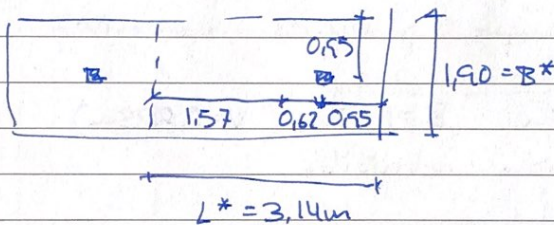 0,95
1,90 = B*
1,57 0,62 0,95
L* = 3,14m